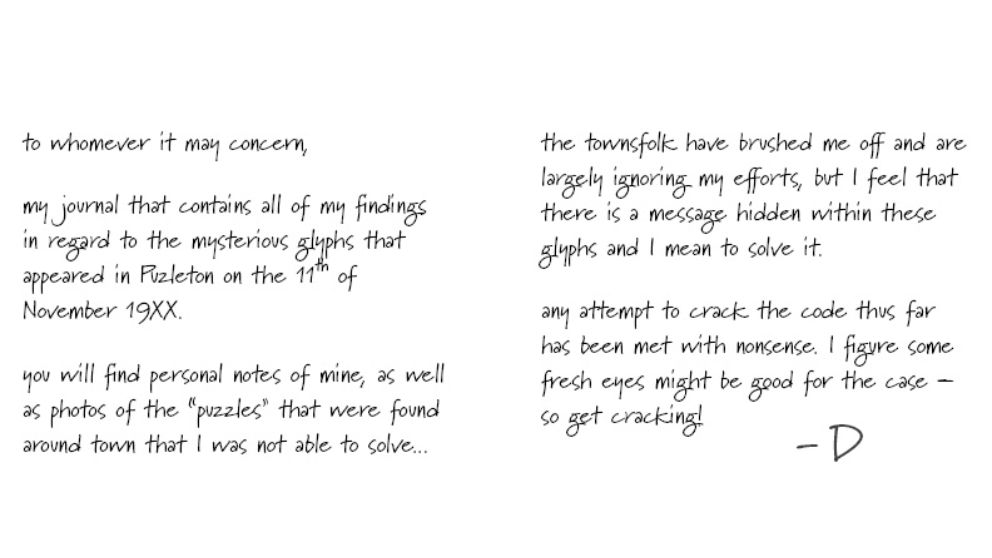 to whomever it may concern,
my journal that contains all of my findings
in regard to the mysterious glyphs that
appeared in Puzleton on the 11th of
November 19XX.
you will find personal notes of mine, as well
as photos of the "puzzles" that were found
around town that I was not able to solve...
the townsfolk have brushed me off and are
largely ignoring my efforts, but I feel that
there is a message hidden within these
glyphs and I mean to solve it.
any attempt to crack the code thus far
has been met with nonsense. I figure some
fresh eyes might be good for the case –
so get cracking!
– D